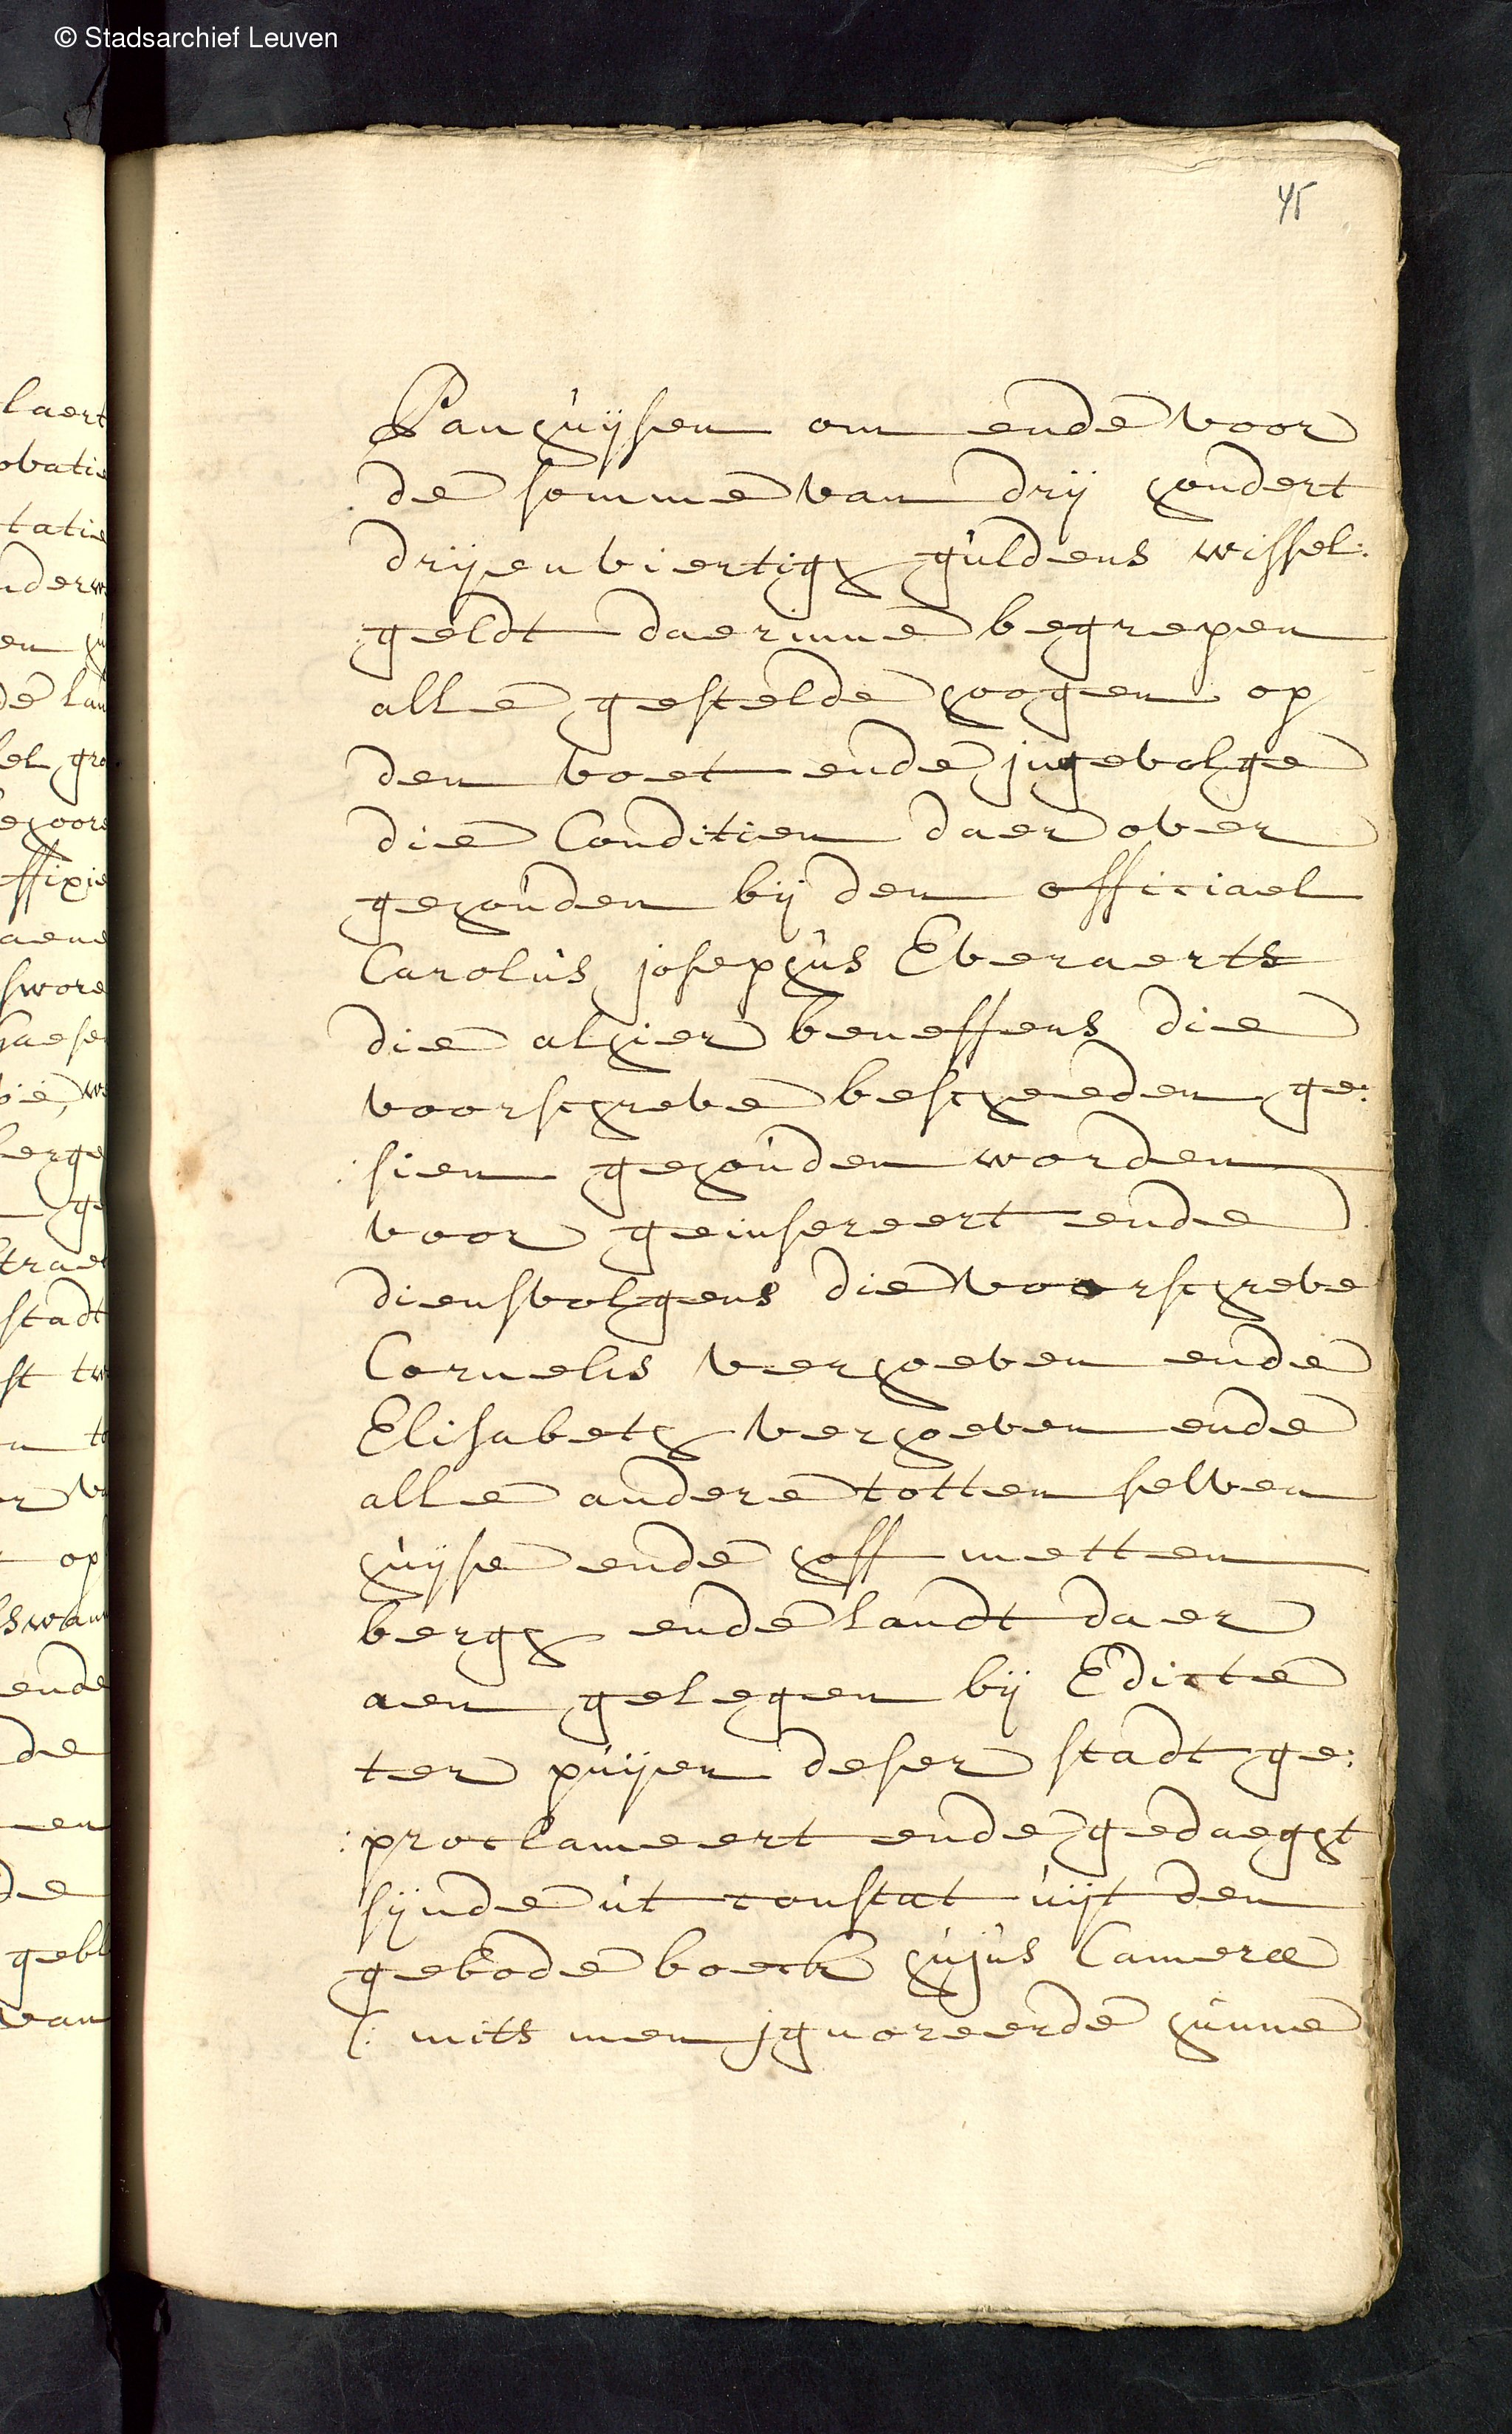 © Stadsarchief Leuven
45
laert
obatie
tatie
nderw
en
de lan
el gro
ehoor
ffixie
aene
swore
haese
bie, we
berge
ge
strae
stadt
st tw
n to
r v
op
swan
ende
de
en
de
gebl
van
Panhuijsen om ende voor
de somme van drij hondert
drijenviertigh guldens wissel:
geldt daerinne begrepen
alle gestelde hoogen op
den voet ende jngevolge
die Conditien daer over
gehouden bij den officiael
Carolus josephus Everaerts
die alhier beneffens die
voorschreve bescheeden ge:
:sien gehouden worden
voor geinsereert ende
diensvolgens die voorschreve
Cornelis verhoeven ende
Elisabeth verhoeven ende
alle andere totten selven
huijse ende hoff metten
bergh ende landt daer
aen gelegen bij Edicte
ter puijen deser stadt ge:
:proclameert ende gedaeght
sijnde ut constat uijt den
gebode boeck hujus Camerae
(: mits men jgnoreerde hunne